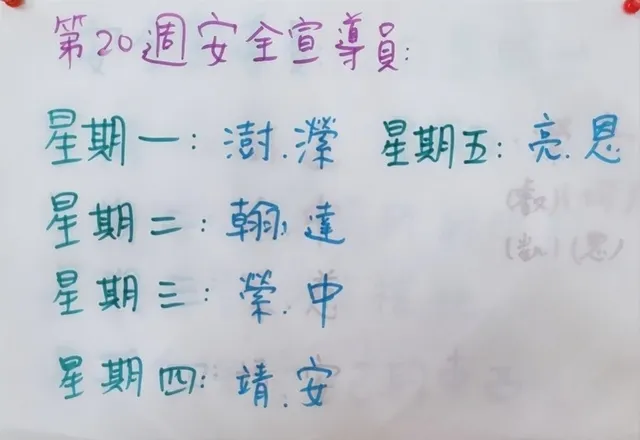 第20週安全宣導員:
星期一:澍.瀠
星期二:翰.達
星期三:榮.中
星期四:靖.安
星期五:亮.恩